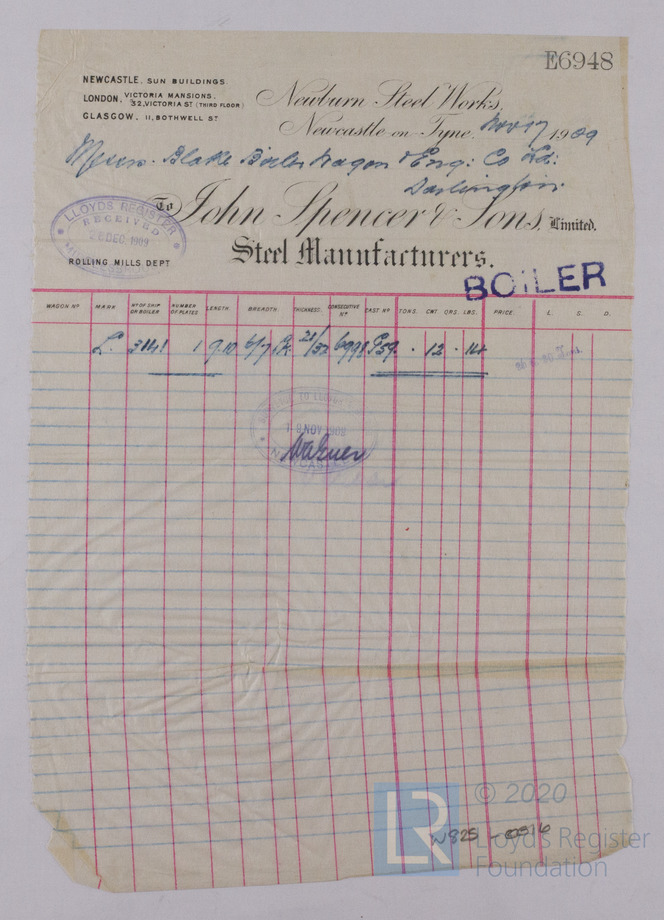 E6948
NEWCASTLE, SUN BUILDINGS
LONDON, VICTORIA MANSIONS,
32, VICTORIA ST (THIRD FLOOR)
GLASGOW, 11, BOTHWELL ST
Newburn Steel Works,
Newcastle-on-Tyne, Nov 17 1909
Messrs. Blake Boiler Wagon & Eng: Co Ld:
Darlington
To John Spencer & Sons, Limited.
Steel Manufacturers.
LLOYDS REGISTER
RECEIVED
DEC. 1909
ROLLING MILLS DEPT
BOILER
WAGON Nº MARK Nº OF SHIP OR BOILER NUMBER OF PLATES LENGTH. BREADTH. THICKNESS. CONSECUTIVE Nº CAST Nº TONS. CWT. QRS. LBS. PRICE. L. S. D.
L. 3141 1 9.10 6/7 21/32 6998 . 12 . 14
NOV 1909
NEWCASTLE
© 2020
LR
Lloyd's Register
Foundation
W825 - 0516